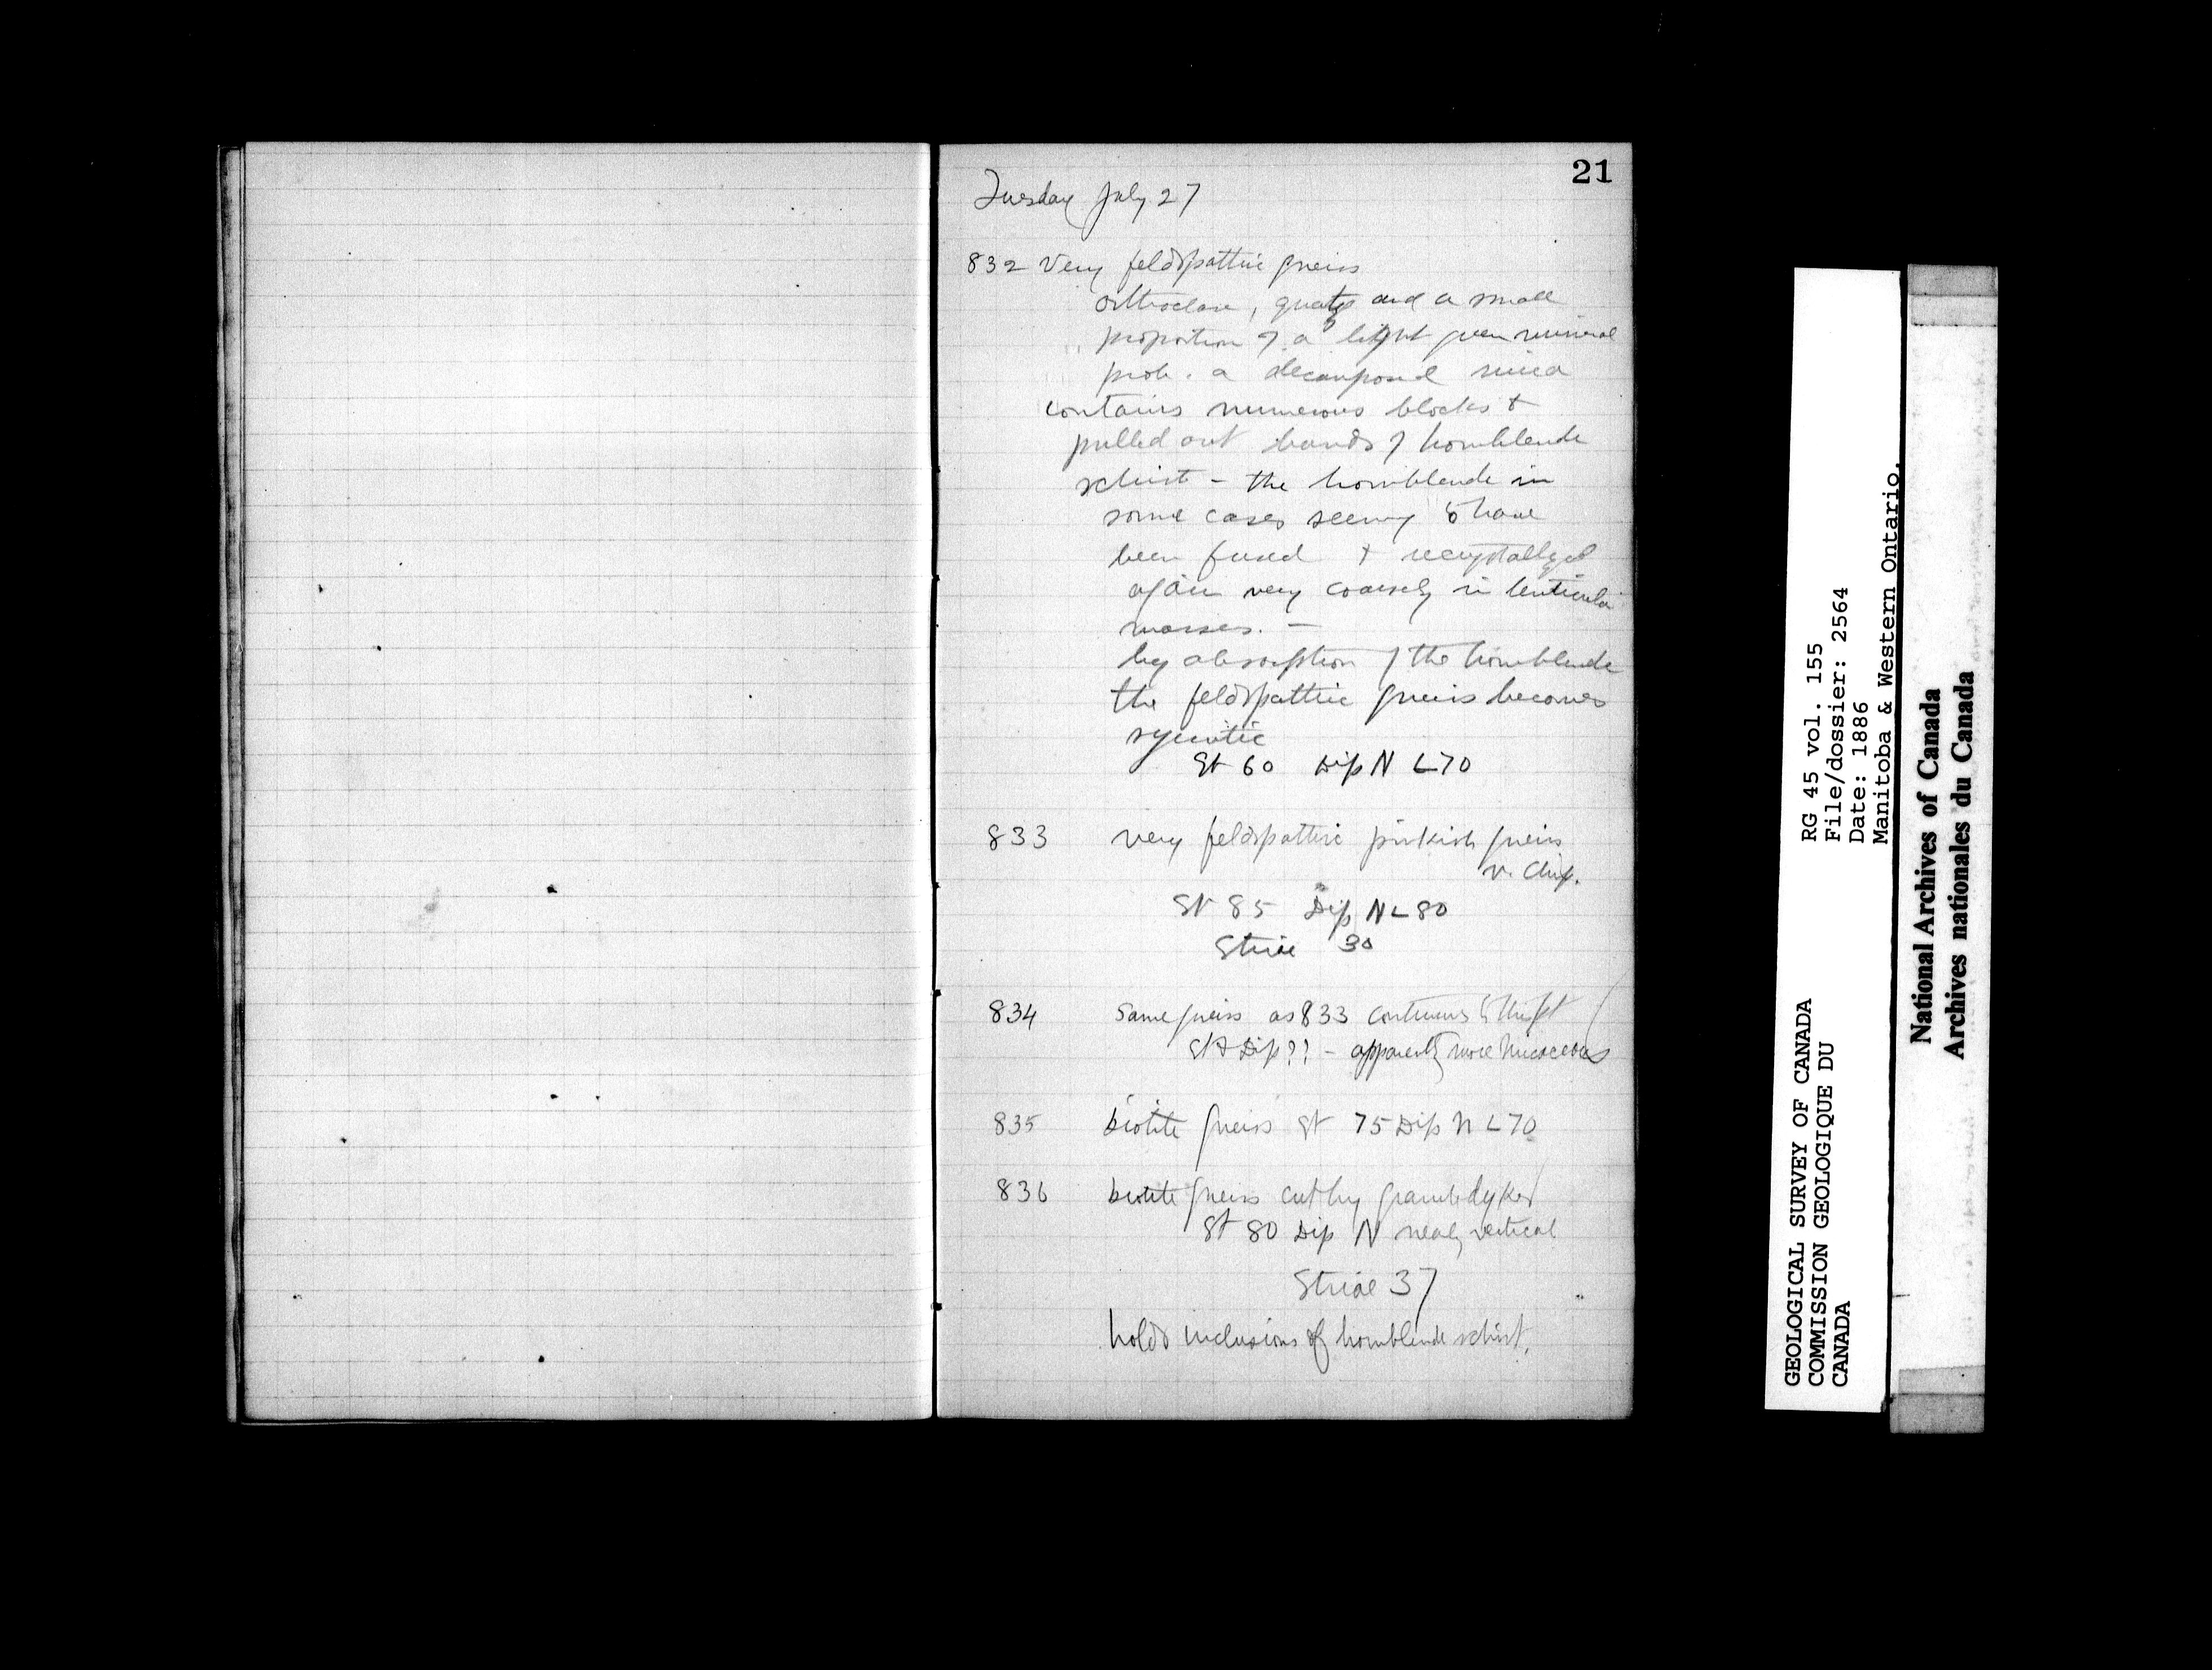 21
Tuesday July 27
832 Very feldspathic gneiss
orthoclase, quartz and a small
proportion of a light green mineral
prob. a decomposed mica
contains numerous blocks &
pulled out bands of hornblende
schist - the hornblende in
some cases seeming to have
been fused & recrystallyzed
again very coarsely in lenticular
masses. -
by absorption of the hornblende
the feldspathic gneiss becomes
syenitic
St 60 Dip N ∠70
833 very feldspathic pinkish gneiss
v. Chip.
St 85 Dip N ∠80
Striae 30
834 Same gneiss as 833 continues to this pt
St & Dip ?? - apparently more micaceous
835 biotite gneiss St 75 Dip N ∠70
836 biotite gneiss cut by granite dykes
St 80 Dip N nearly vertical
Striae 37
holds inclusions of hornblende schist.
GEOLOGICAL SURVEY OF CANADA
COMMISSION GEOLOGIQUE DU
CANADA
RG 45 vol. 155
File/dossier: 2564
Date: 1886
Manitoba & Western Ontario.
National Archives of Canada
Archives nationales du Canada